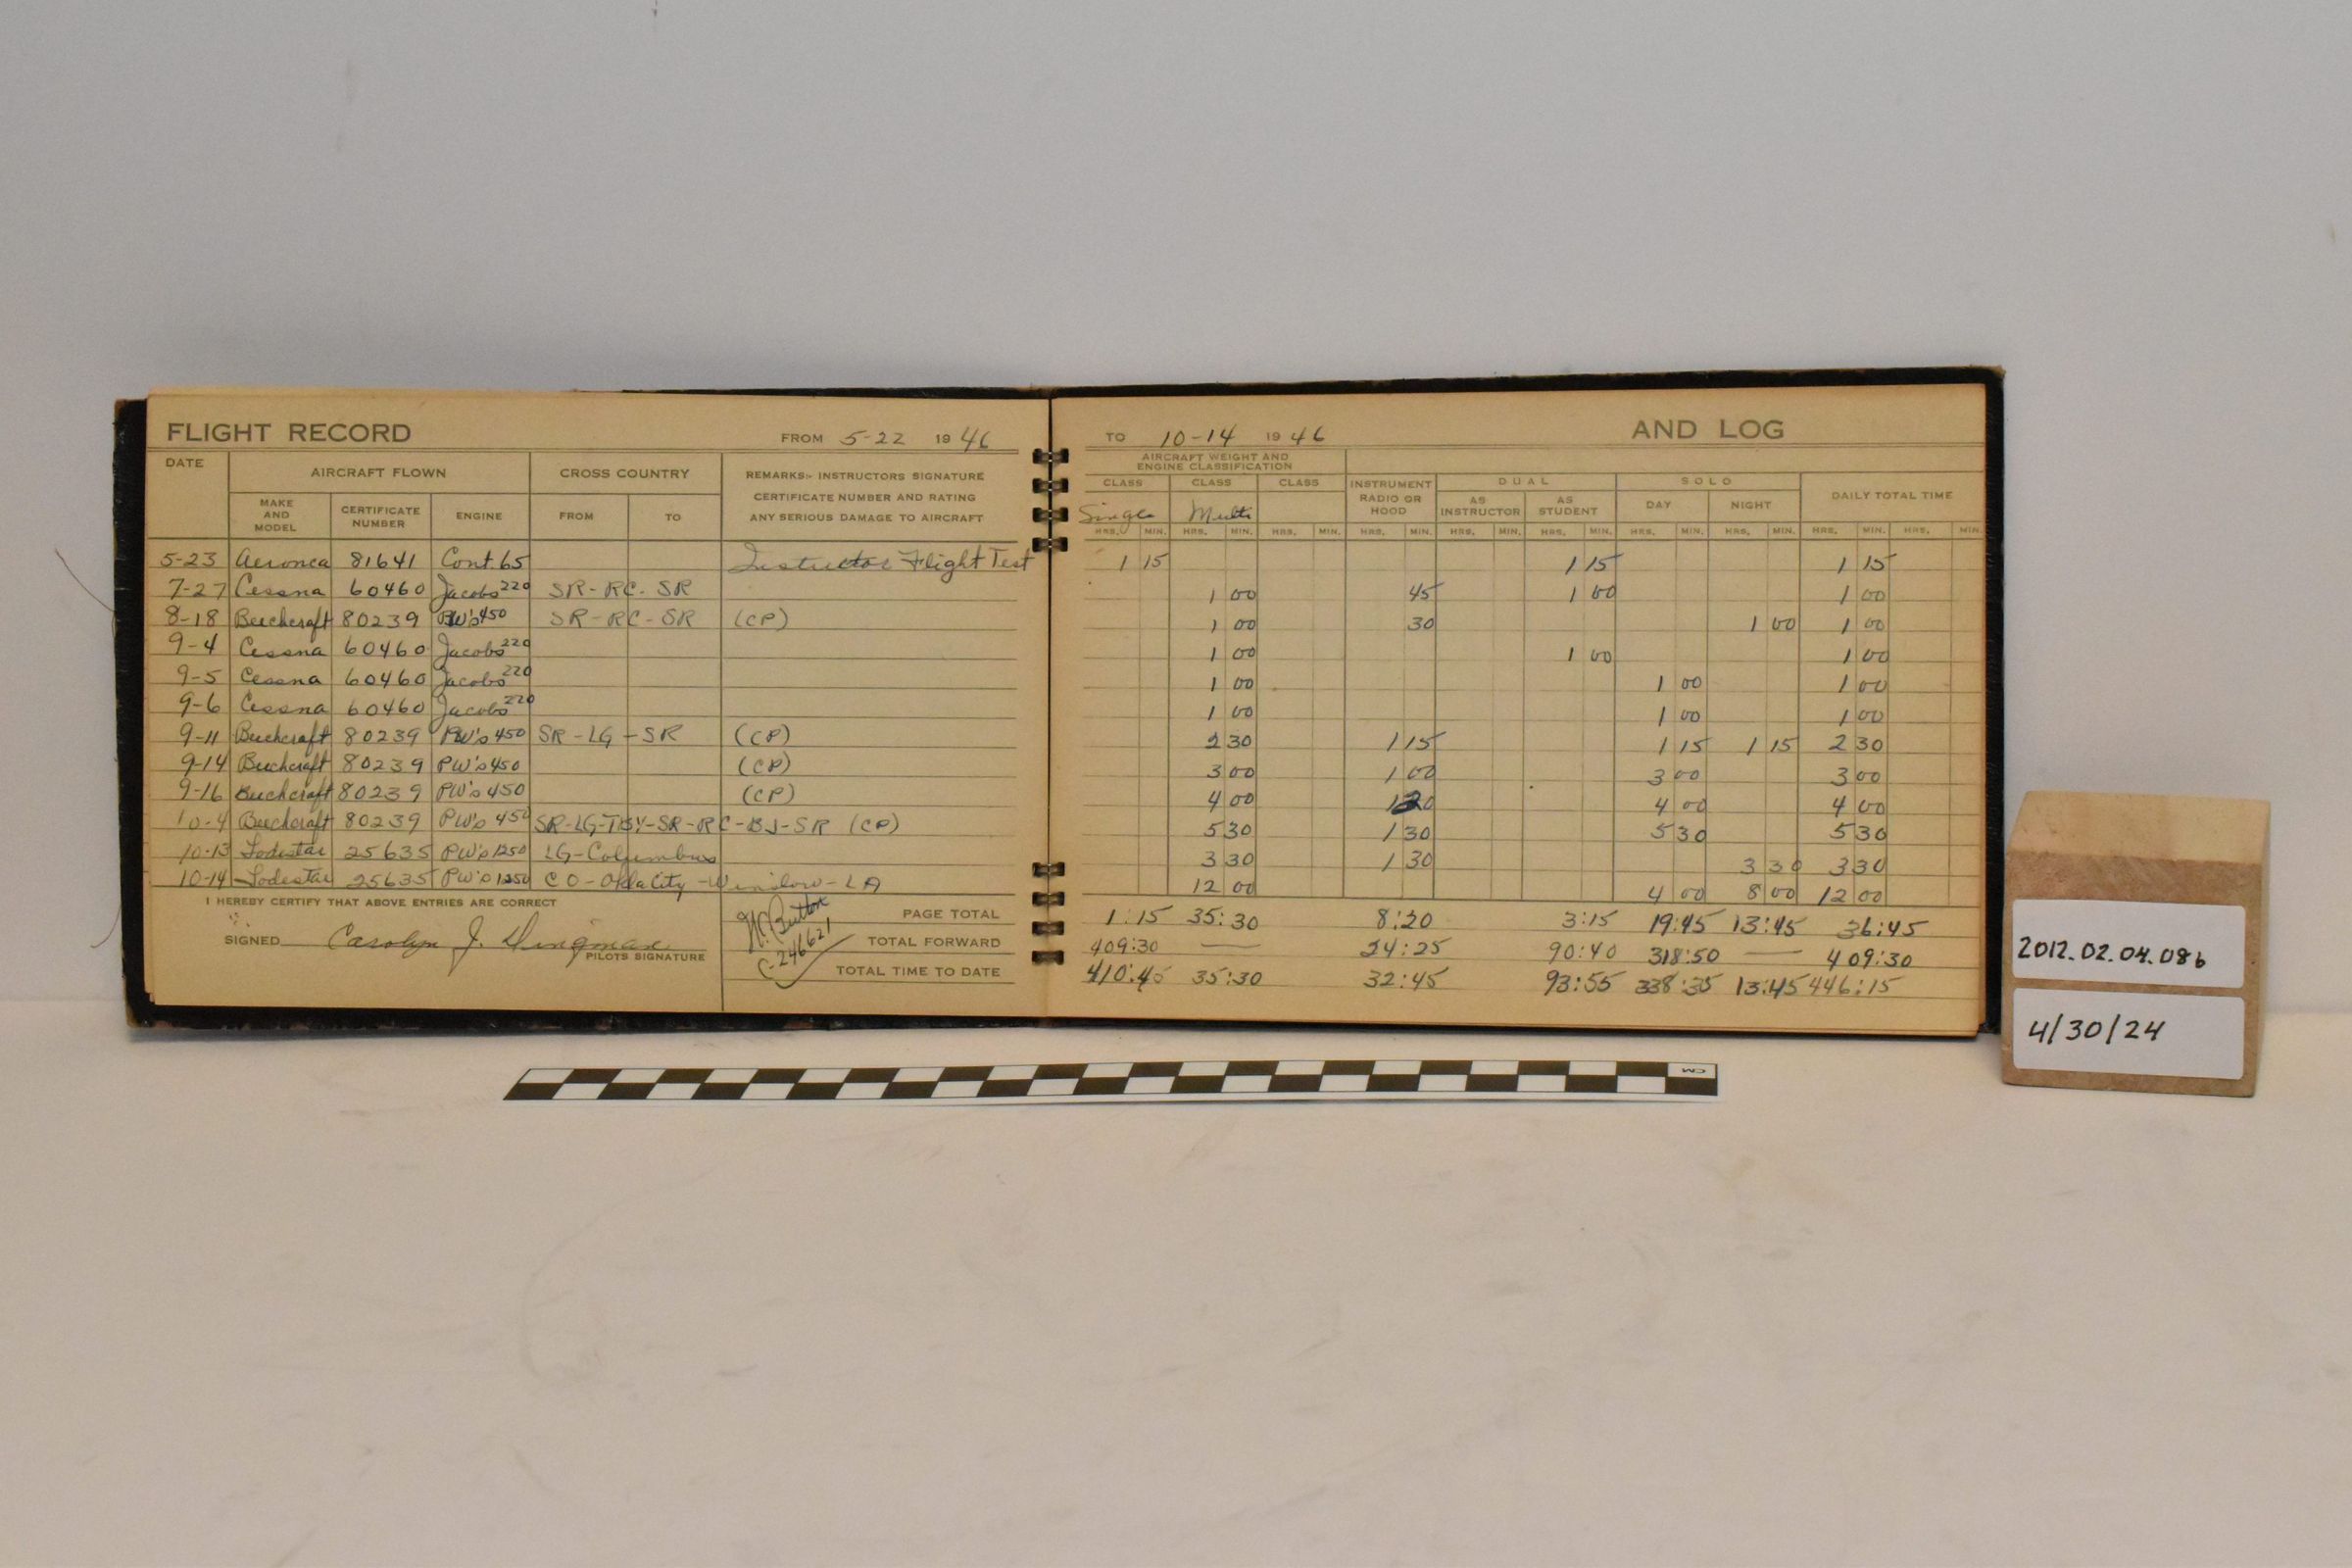 FLIGHT RECORD FROM 5-22 1946 TO 10-14 1946 AND LOG
DATE AIRCRAFT FLOWN CROSS COUNTRY REMARKS:- INSTRUCTORS SIGNATURE CERTIFICATE NUMBER AND RATING ANY SERIOUS DAMAGE TO AIRCRAFT AIRCRAFT WEIGHT AND ENGINE CLASSIFICATION
MAKE AND MODEL CERTIFICATE NUMBER ENGINE FROM TO CLASS CLASS CLASS INSTRUMENT RADIO OR HOOD DUAL SOLO DAILY TOTAL TIME
Single Multi AS INSTRUCTOR AS STUDENT DAY NIGHT
HRS. MIN. HRS. MIN. HRS. MIN. HRS. MIN. HRS. MIN. HRS. MIN. HRS. MIN. HRS. MIN. HRS. MIN. HRS. MIN.
5-23 Aeronca 81641 Cont. 65 Instructor Flight Test 1 15 1 15 1 15
7-27 Cessna 60460 Jacobs 220 SR-RC-SR 1 00 45 1 00 1 00
8-18 Beechcraft 80239 PW's 450 SR-RC-SR (CP) 1 00 30 1 00 1 00
9-4 Cessna 60460 Jacobs 220 1 00 1 00 1 00
9-5 Cessna 60460 Jacobs 220 1 00 1 00 1 00
9-6 Cessna 60460 Jacobs 220 1 00 1 00 1 00
9-11 Beechcraft 80239 PW's 450 SR-LG-SR (CP) 2 30 1 15 1 15 1 15 2 30
9-14 Beechcraft 80239 PW's 450 (CP) 3 00 1 00 3 00 3 00
9-16 Beechcraft 80239 PW's 450 (CP) 4 00 1 20 4 00 4 00
10-4 Beechcraft 80239 PW's 450 SR-LG-TBY-SR-RC-BJ-SR (CP) 5 30 1 30 5 30 5 30
10-13 Lodestar 25635 PW's 1250 LG-Columbus 3 30 1 30 3 30 3 30
10-14 Lodestar 25635 PW's 1250 CO-Okla City-Winslow-LA 12 00 4 00 8 00 12 00
I HEREBY CERTIFY THAT ABOVE ENTRIES ARE CORRECT
SIGNED Carolyn J. Dingman
PILOTS SIGNATURE
Button
C-246621
PAGE TOTAL 1:15 35:30 8:20 3:15 19:45 13:45 36:45
TOTAL FORWARD 409:30 — 24:25 90:40 318:50 — 409:30
TOTAL TIME TO DATE 410:45 35:30 32:45 93:55 338:35 13:45 446:15
CM
2012.02.04.08b
4/30/24